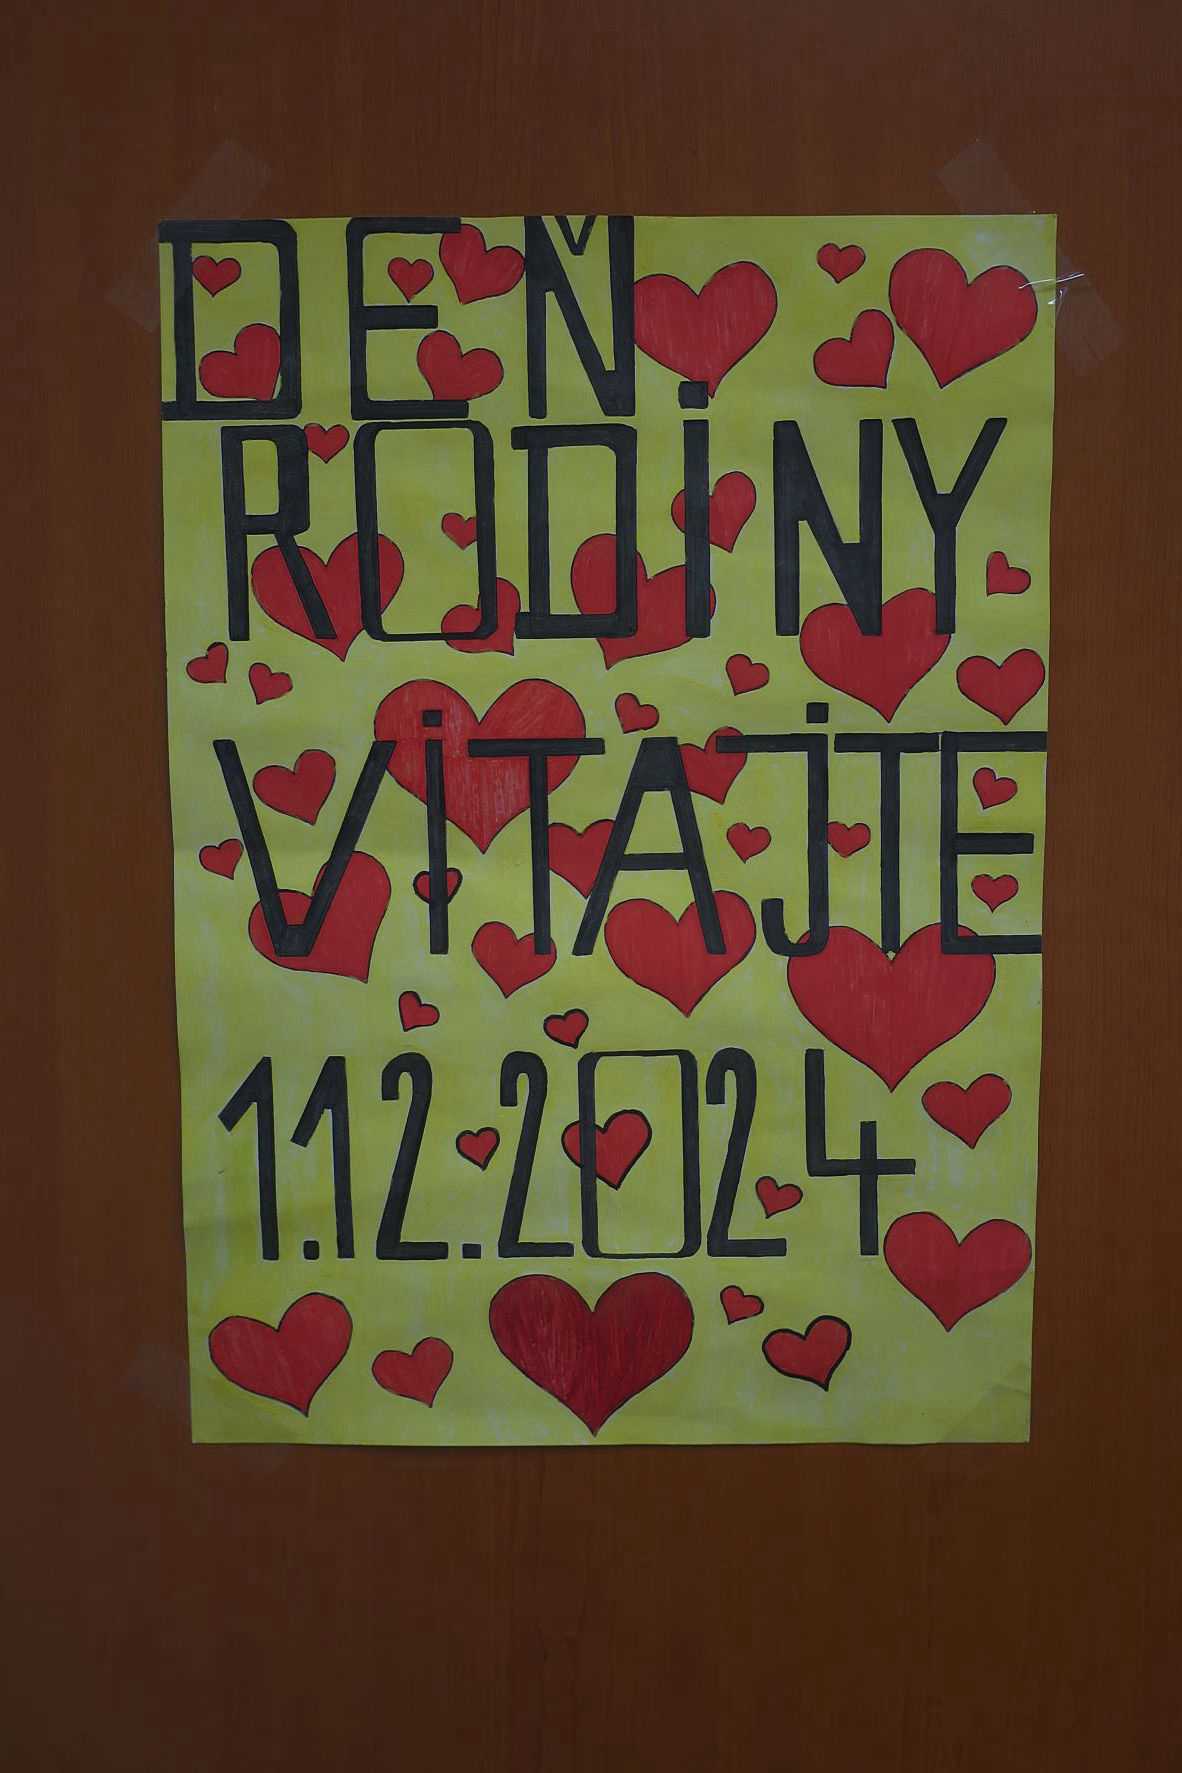 DEŇ
RODINY
VITAJTE
1.12.2024